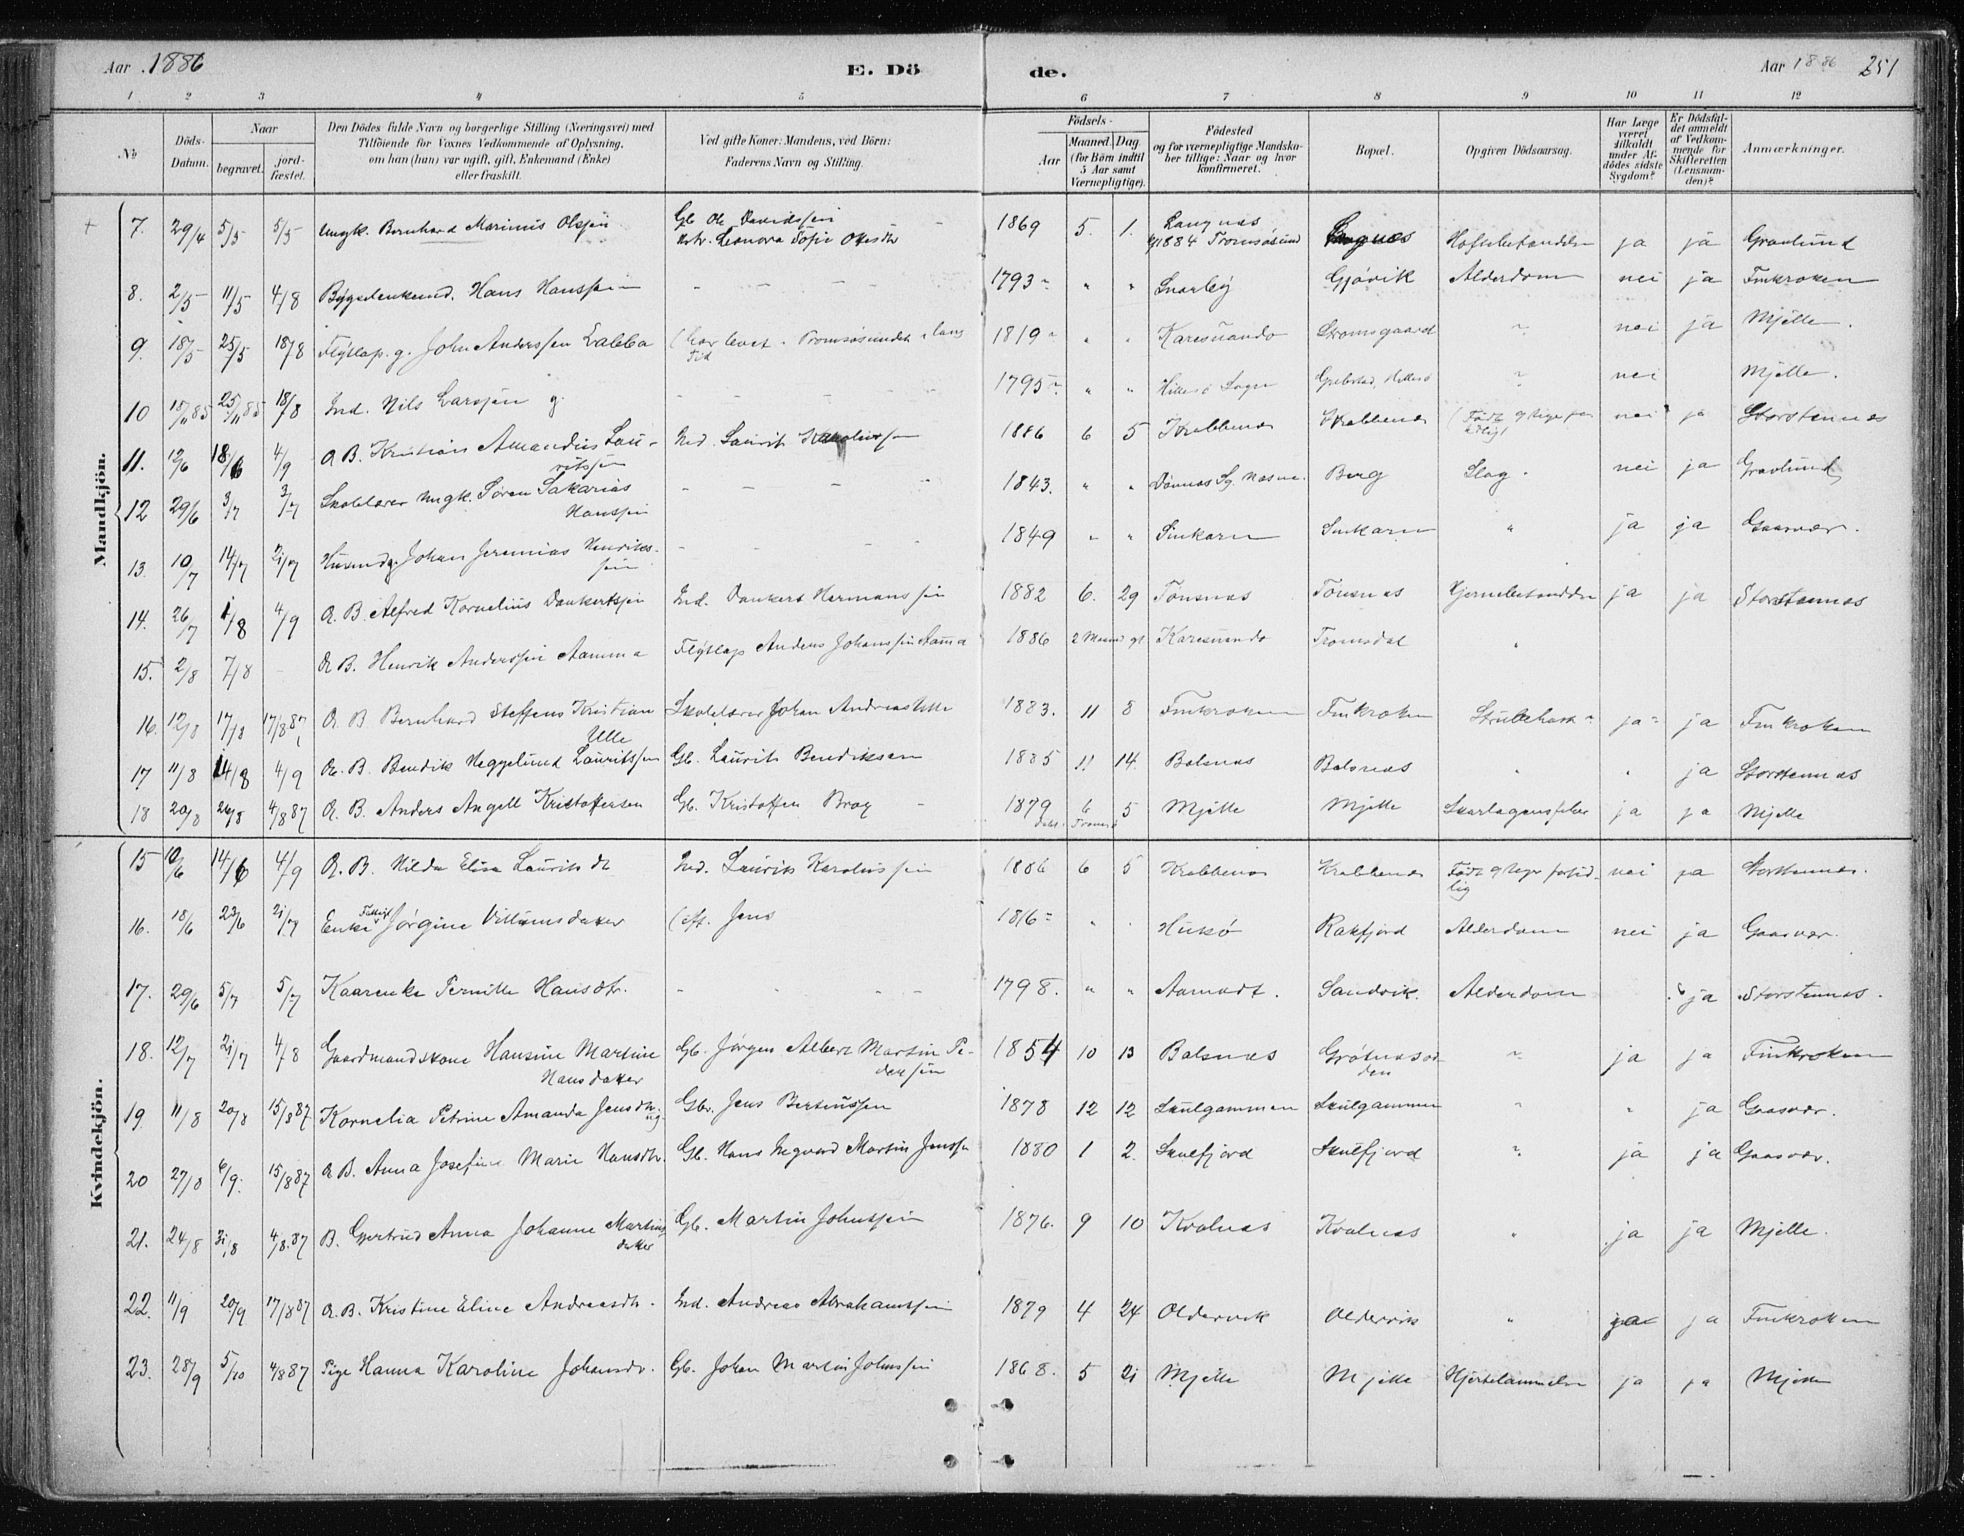 Aar 1886 E. Döde. Aar 1886 251
1 2 3 4 5 6 7 8 9 10 11 12
No Döds-Datum. Naar begravet. jordfæstet. Den Dödes fulde Navn og borgerlige Stilling (Næringsvei) med Tilföiende for Voxnes Vedkommende af Oplysning, om han (hun) var ugift, gift, Enkemand (Enke) eller fraskilt. Ved gifte Koner: Mandens, ved Börn: Faderens Navn og Stilling. Födsels- Aar Maaned. Dag (for Börn indtil 5 Aar samt Værnepligtige). Födested og for værnepligtige Mandskaber tillige: Naar og hvor konfirmeret. Bopæl. Opgiven Dödsaarsag. Har Læge været tilkaldt under Afdödes sidste Sygdom? Er Dödsfaldet anmeldt af Vedkommende for Skifteretten (Lensmanden)? Anmærkninger.
Mandkjön.
7. 29/4 5/5 5/5 Ungk. Bernhard Marinus Olssen Gb. Ole Davidssen 1869 5. 1. Langnes Hofsbetændelse ja ja Gravlund
1884 Tromsøsund
8. 2/5 11/5 4/8 Hans Hanssen 1793 " " Snarby Gjövik Alderdom nei ja Finkroken
9. 18/5 25/5 18/8 Flytlap. g. John Anderssen Labba (har levet i Tromsøsundet i lang Tid 1819 " " Karesuando Stromsgaard " nei ja Mjelle.
10 18/11 85 25/11 85 18/8 Ind. Nils Larssen g. 1795 " " Hillesö Sogn " nei Mjelle.
11. 12/6 18/6 4/9 Æ. B. Kristian Amandus Lauritssen Ind. Laurits Karolussen 1886 6 5 Krabbenes Krabbenes nei ja Storstennes
12 29/6 3/7 3/7 Skolelærer ungk. Søren Sakarias Hanssen 1843. " " Berg Slag. nei ja Gravlund
13. 10/7 14/7 21/7 Husmd. g. Johan Jeremias Henrikssen 1849 " " Sinkarn Sinkarn " ja ja Gaasvær.
14. 26/7 1/8 4/9 Æ. B. Alfred Kornelius Dankertssen Ind. Dankert Hermanssen 1882 6. 29 Tönsnes Tönsnes Hjernebetændelse ja ja Storstennes
15. 2/8 7/8 - Æ B. Henrik Anderssen Aamma Flytlap Anders Johanssen Aamma 1886 2 Maaned gl. Karesuando Tromsdal "
16. 12/8 17/8 17/8 87 Æ B Bernhard Steffens Kristian Ulle Skolelærer Johan Andreas Ulle 1883. 11 8 Finkroken Finkroken Strubehoste ja ja Finkroken
17 11/8 14/8 4/9 Æ. B. Bendik Heggelund Lauritssen Gb. Laurits Bendiksen 1885 11 14. Balsnes Balsnes " " ja Storstennes
18 20/8 26/8 4/8 87 Æ. B. Anders Angell Kristoffersen Gb. Kristoffer Brox 1879 6 5 Mjelle Mjelle Skarlagensfeber ja ja Mjelle
Kvindekjön.
15 10/6 14/6 4/9 Æ. B. Hilda Elisa Lauritsdt Ind. Laurits Karolussen 1886 6 5 Krabbenes Krabbenes Födt 9 Uger fortidlig nei ja Storstennes.
16. 18/6 23/6 21/7 Enke Fattigl. Jørgine Villumsdatter (eft. Jens 1816 " . Husö Rakfjord Alderdom nei ja Gaasvær.
17. 29/6 5/7 5/7 Kaarenke Pernille Hansdtr. 1798. " " Sandvik. Alderdom ja Storstennes.
18. 12/7 21/7 4/8 Gaardmandskone Hansine Martine Hansdatter Gb. Jørgen Albert Martin Pederssen 1854 10 13 Balsnes Grötnesodden " ja ja Finkroken
19. 11/8 20/8 15/8 87 Kornelia Petrine Amanda Jensdtr. ug. Gbr. Jens Bertinussen 1878 12 12 Skulgammen Skulgammen " " ja Gaasvær.
20 27/8 6/9. 15/8 87 Æ B. Anna Josefine Marie Hansdtr. Gb. Hans Ingvard Martin Jenssen 1880 1 2. Skulfjord Skulfjord " ja ja Gaasvær.
21. 24/8 31/8 4/8. 87 B. Gjertrud Anna Johanne Martinsdatter Gb. Martin Johnssen 1876. 9 10 Kvalnes Kvalnes " ja ja Mjelle.
22. 11/9 20/9 17/8 87 Æ. B. Kristine Eline Andreasdtr. Ind. Andreas Abrahamssen 1879 4 24 Oldervik Oldervik " ja ja Finkroken
23. 28/9 5/10 4/8 87 Pige Hanna Karoline Johansdtr. Gb. Johan Martin Johnssen 1868. 5 21 Mjelle Mjelle Hjertelammelse ja ja Mjelle